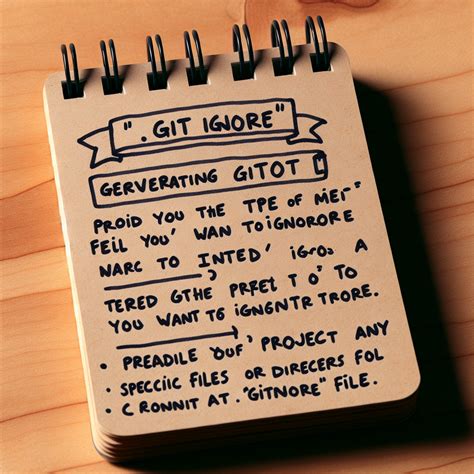 ". GIT IGNORE"
GERVERATING GITOT
PROID YOU THE TPE OF MIET
FEIL YOU' WAN TOIGNORORE
NARC TO INTED' IGRO, A
TERED GTHE PRFET TO TO
YOU WANT TG IGNGNTR TRORE.
• PREADILE YOUF' PROJECT ANY
• SPECCIC FILES OR DIRECERS FOL
• C RONNIT AT ."GITNORE" FILE.